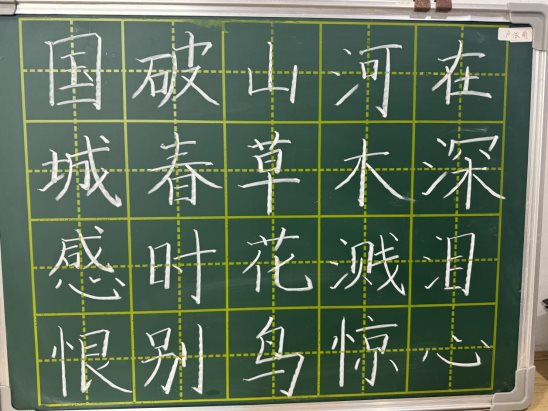 国破山河在
城春草木深
感时花溅泪
恨别鸟惊心